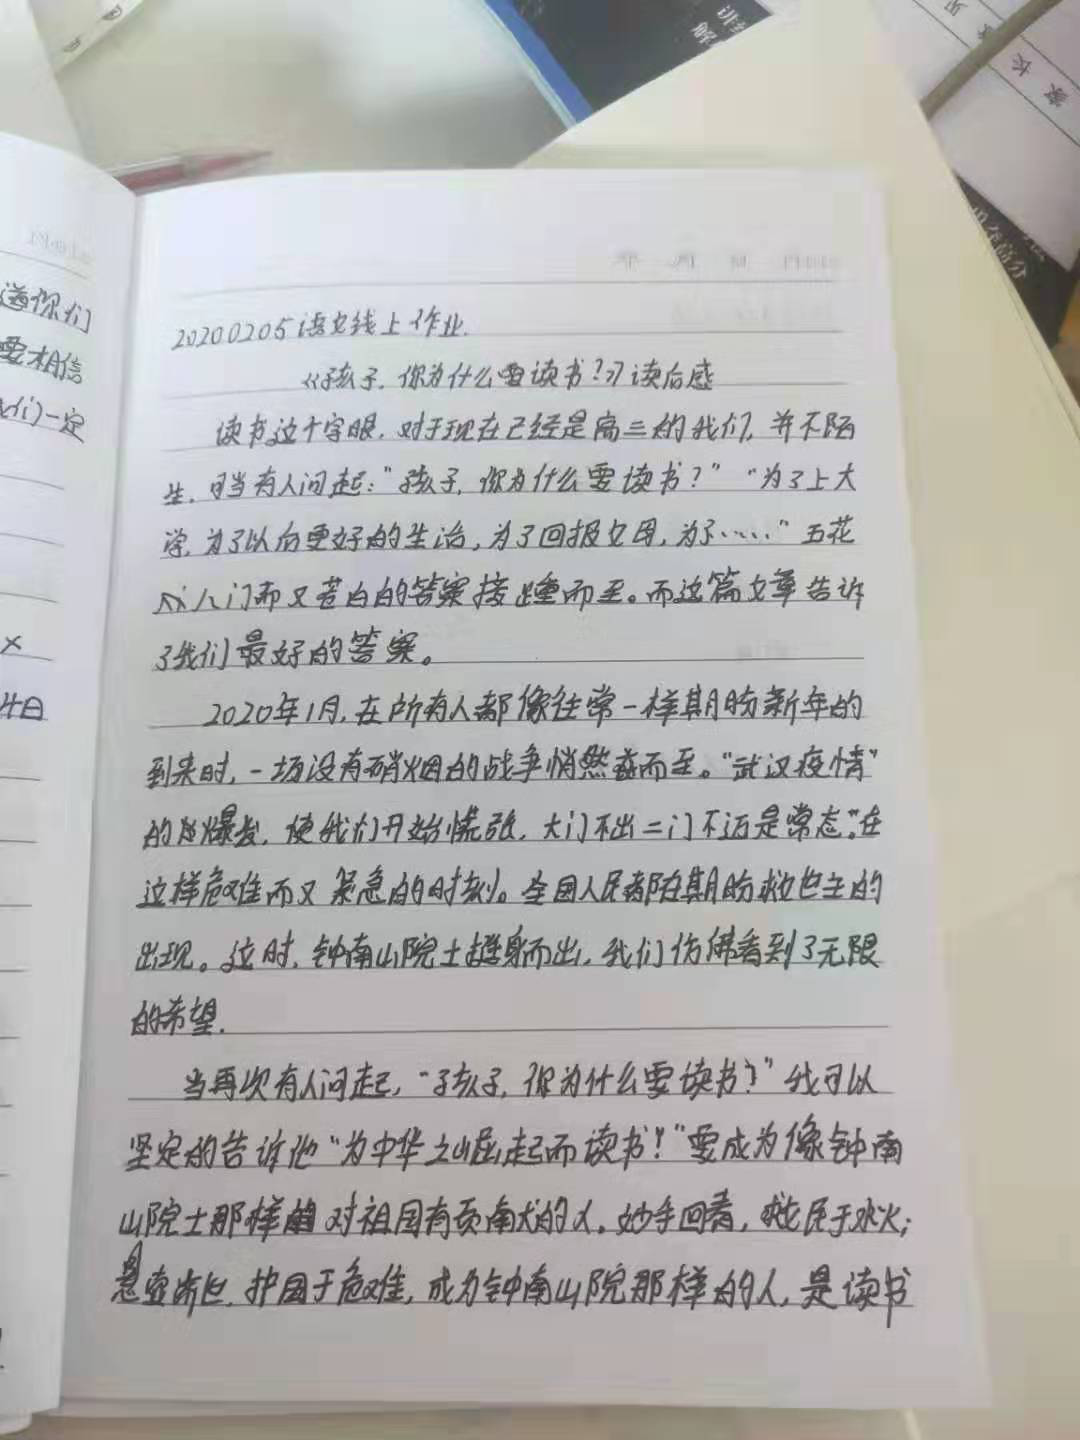 讲
解
家长
高分
道你们
要相信
我们一定
×
4日
20200205语文线上作业.
《孩子,你为什么要读书?》读后感
读书这个字眼,对于现在已经是高三的我们,并不陌
生.可当有人问起:"孩子,你为什么要读书?" "为了上大
学,为了以后更好的生活,为了回报父母,为了……"五花
八门而又苍白的答案接踵而至。而这篇文章告诉
了我们最好的答案。
2020年1月,在所有人都像往常一样期盼新年的
到来时,一场没有硝烟的战争悄然而至。"武汉疫情"
的爆发,使我们开始慌张,大门不出二门不迈是常态.在
这样危难而又紧急的时刻。全国人民都在期盼救世主的
出现。这时,钟南山院士挺身而出,我们仿佛看到了无限
的希望.
当再次有人问起,"孩子,你为什么要读书?"我可以
坚定的告诉他"为中华之崛起而读书!"要成为像钟南
山院士那样 对祖国有贡献的人.妙手回春,救民于水火;
悬壶济世.护国于危难,成为钟南山院那样的人,是读书